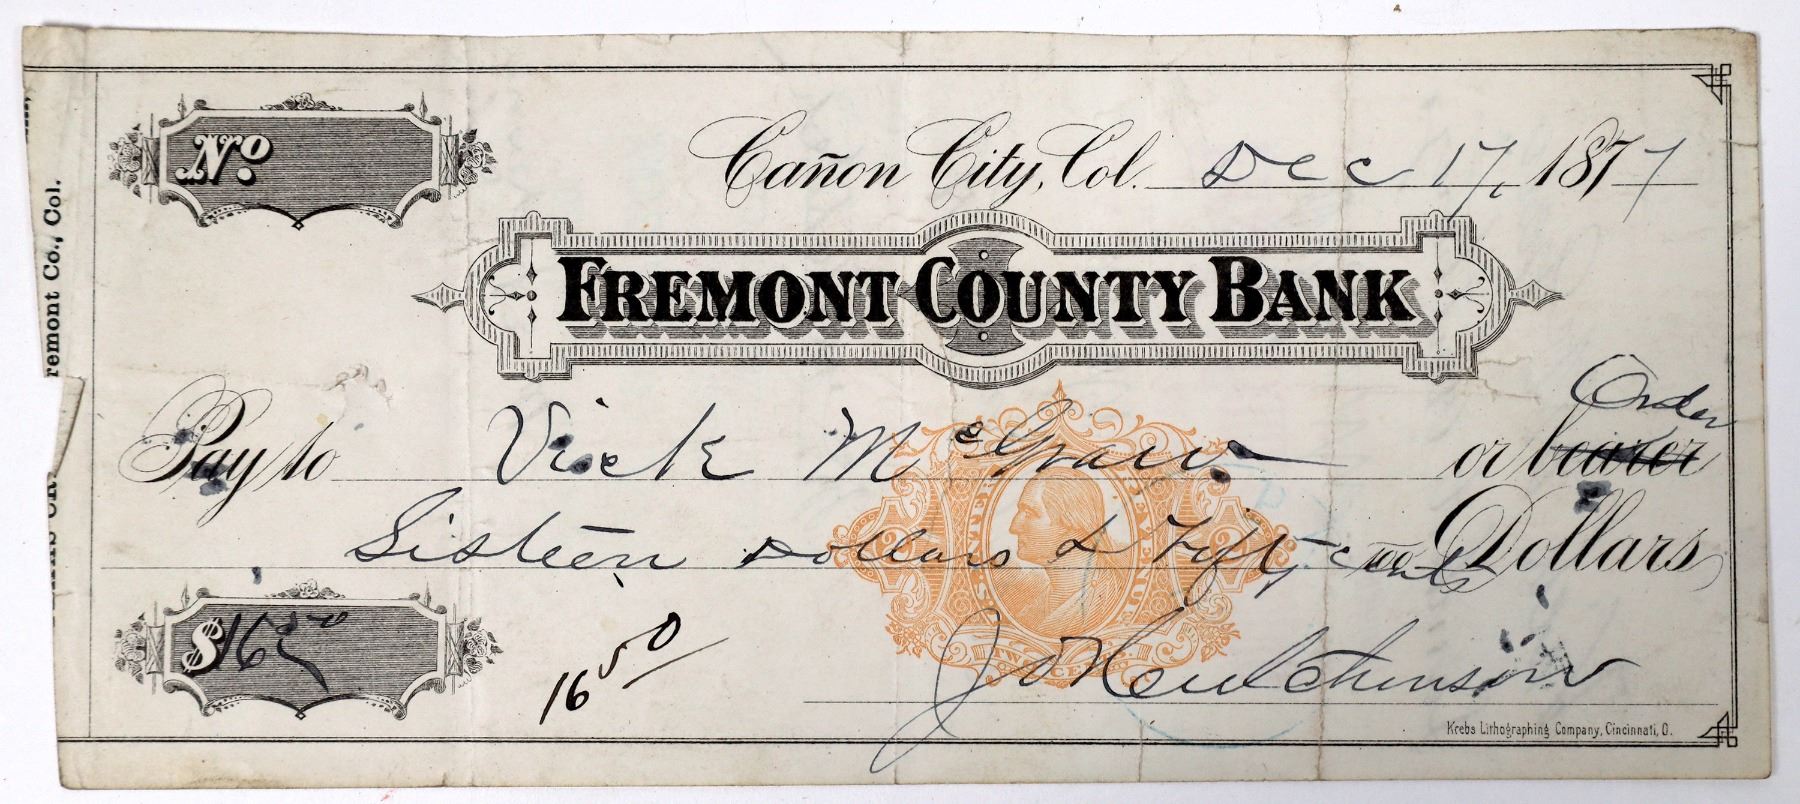 No.
Cañon City, Col. Dec 17, 1877
remont Co., Col.
FREMONT COUNTY BANK
Order
Pay to Vick McGraw or bearer
Sisteen Dollars & Fifty cents 100 Dollars
$16 50
16 50
TWO CENTS
J Hutchinson
Krebs Lithographing Company, Cincinnati, O.